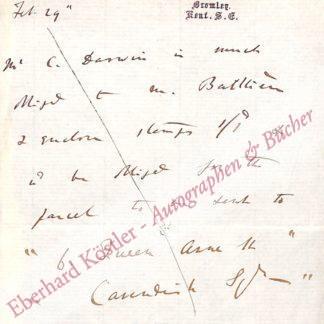 Feb. 29th
Bromley.
Kent. S.E.
Mr C. Darwin is much
obliged to M. Baillière
& encloses stamps 1/1d &
wd be obliged for the
parcel to be sent to
"6 Queen Anne St"
Cavendish Sqre
Eberhard Köstler - Autographen & Bücher